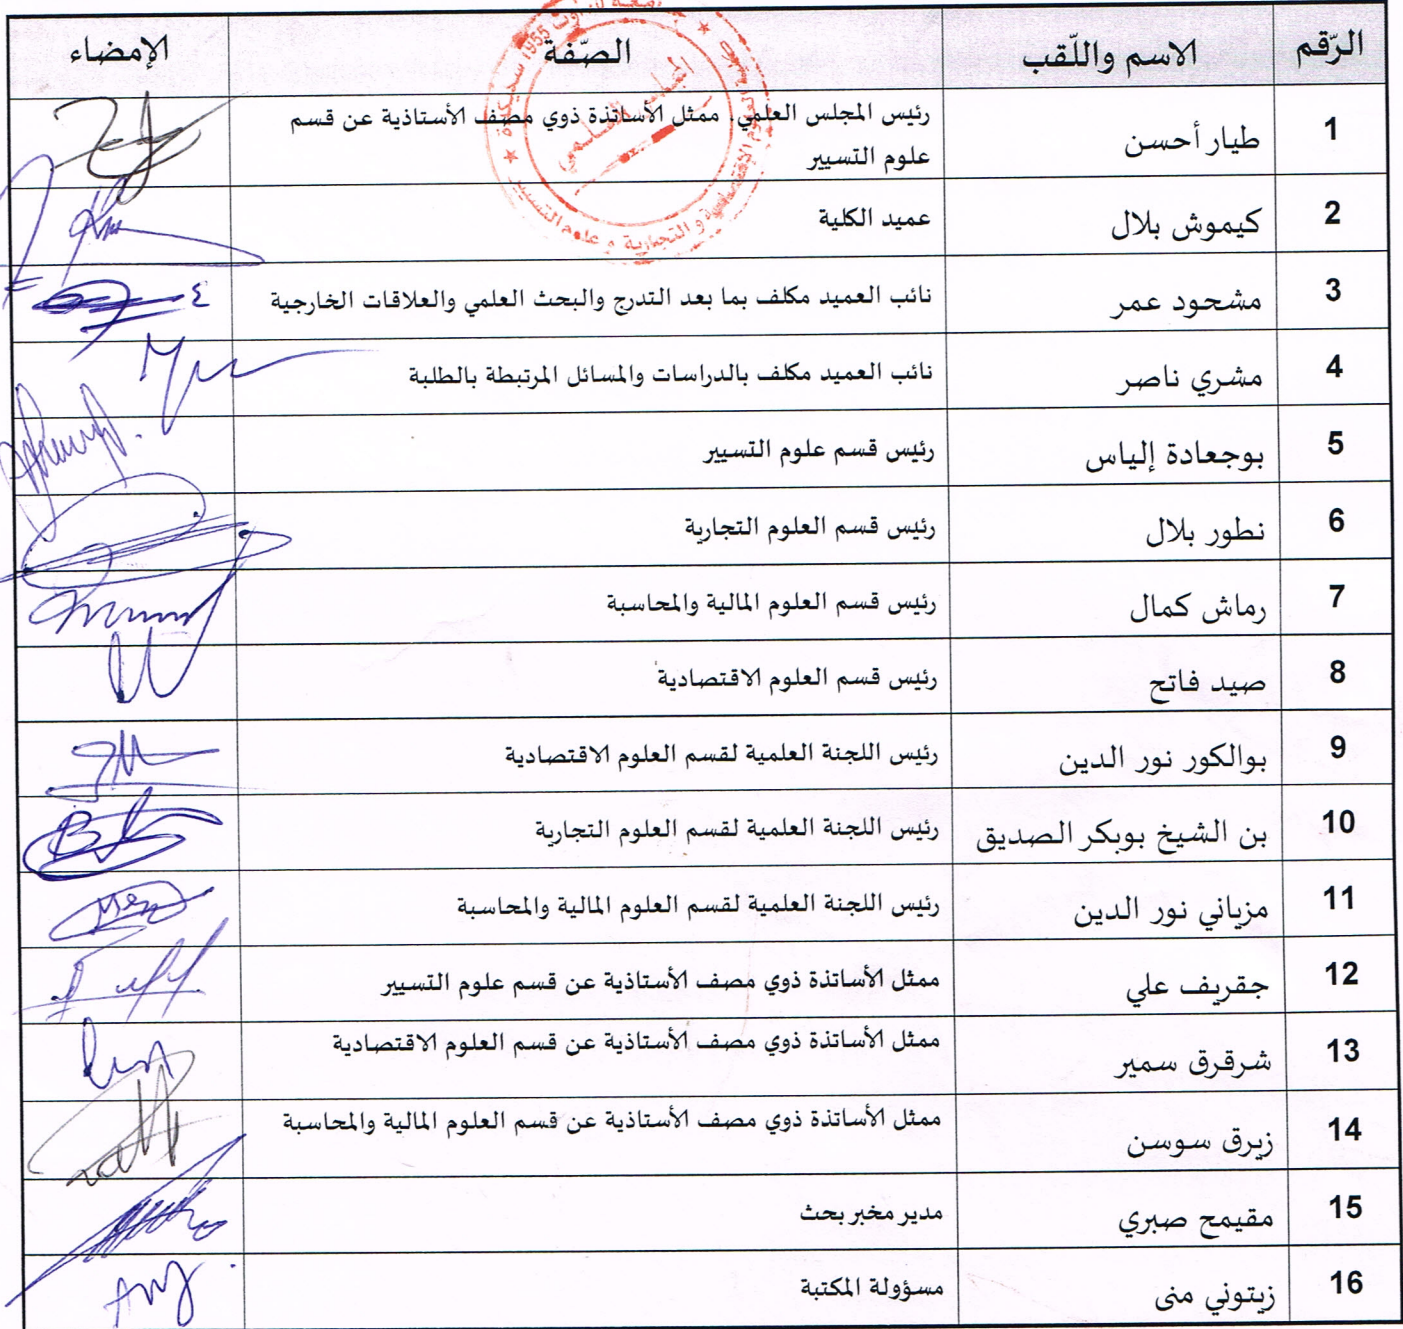 الرّقم الاسم واللّقب الصّفة الإمضاء
1 طيار أحسن رئيس المجلس العلمي. ممثل الأساتذة ذوي مصف الأستاذية عن قسم
علوم التسيير
2 كيموش بلال عميد الكلية
3 مشحود عمر نائب العميد مكلف بما بعد التدرج والبحث العلمي والعلاقات الخارجية
4 مشري ناصر نائب العميد مكلف بالدراسات والمسائل المرتبطة بالطلبة
5 بوجعادة إلياس رئيس قسم علوم التسيير
6 نطور بلال رئيس قسم العلوم التجارية
7 رماش كمال رئيس قسم العلوم المالية والمحاسبة
8 صيد فاتح رئيس قسم العلوم الاقتصادية
9 بوالكور نور الدين رئيس اللجنة العلمية لقسم العلوم الاقتصادية
10 بن الشيخ بوبكر الصديق رئيس اللجنة العلمية لقسم العلوم التجارية
11 مزياني نور الدين رئيس اللجنة العلمية لقسم العلوم المالية والمحاسبة
12 جقريف علي ممثل الأساتذة ذوي مصف الأستاذية عن قسم علوم التسيير
13 شرقرق سمير ممثل الأساتذة ذوي مصف الأستاذية عن قسم العلوم الاقتصادية
14 زيرق سوسن ممثل الأساتذة ذوي مصف الأستاذية عن قسم العلوم المالية والمحاسبة
15 مقيمح صبري مدير مخبر بحث
16 زيتوني منى مسؤولة المكتبة
1955 سكيكدة
المجلس العلمي
و التجارية و علوم التسيير